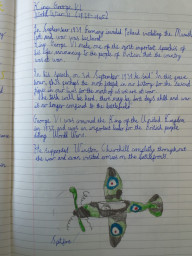 King George VI
World War II (1939-1945)
In September 1939 Germany invaded Poland
and war was declared.
King George VI made one of the most important speeches of
his life announcing to the people of Britain that the country
was at war.
In his speech on 3rd September 1939 he said "In this grave
hour, perhaps the most fateful in our history
for the second
time in our lives for the most of us we are at war.
The task will be hard, there may be dark days ahead and war
is no longer confined to the battlefield
George VI was crowned the King of the United Kingdom
in 1937 and was an important leader for the British people
during World War II
He supported Winston Churchill completely throughout
the war and even visited armies on the battlefront.
Spitfire